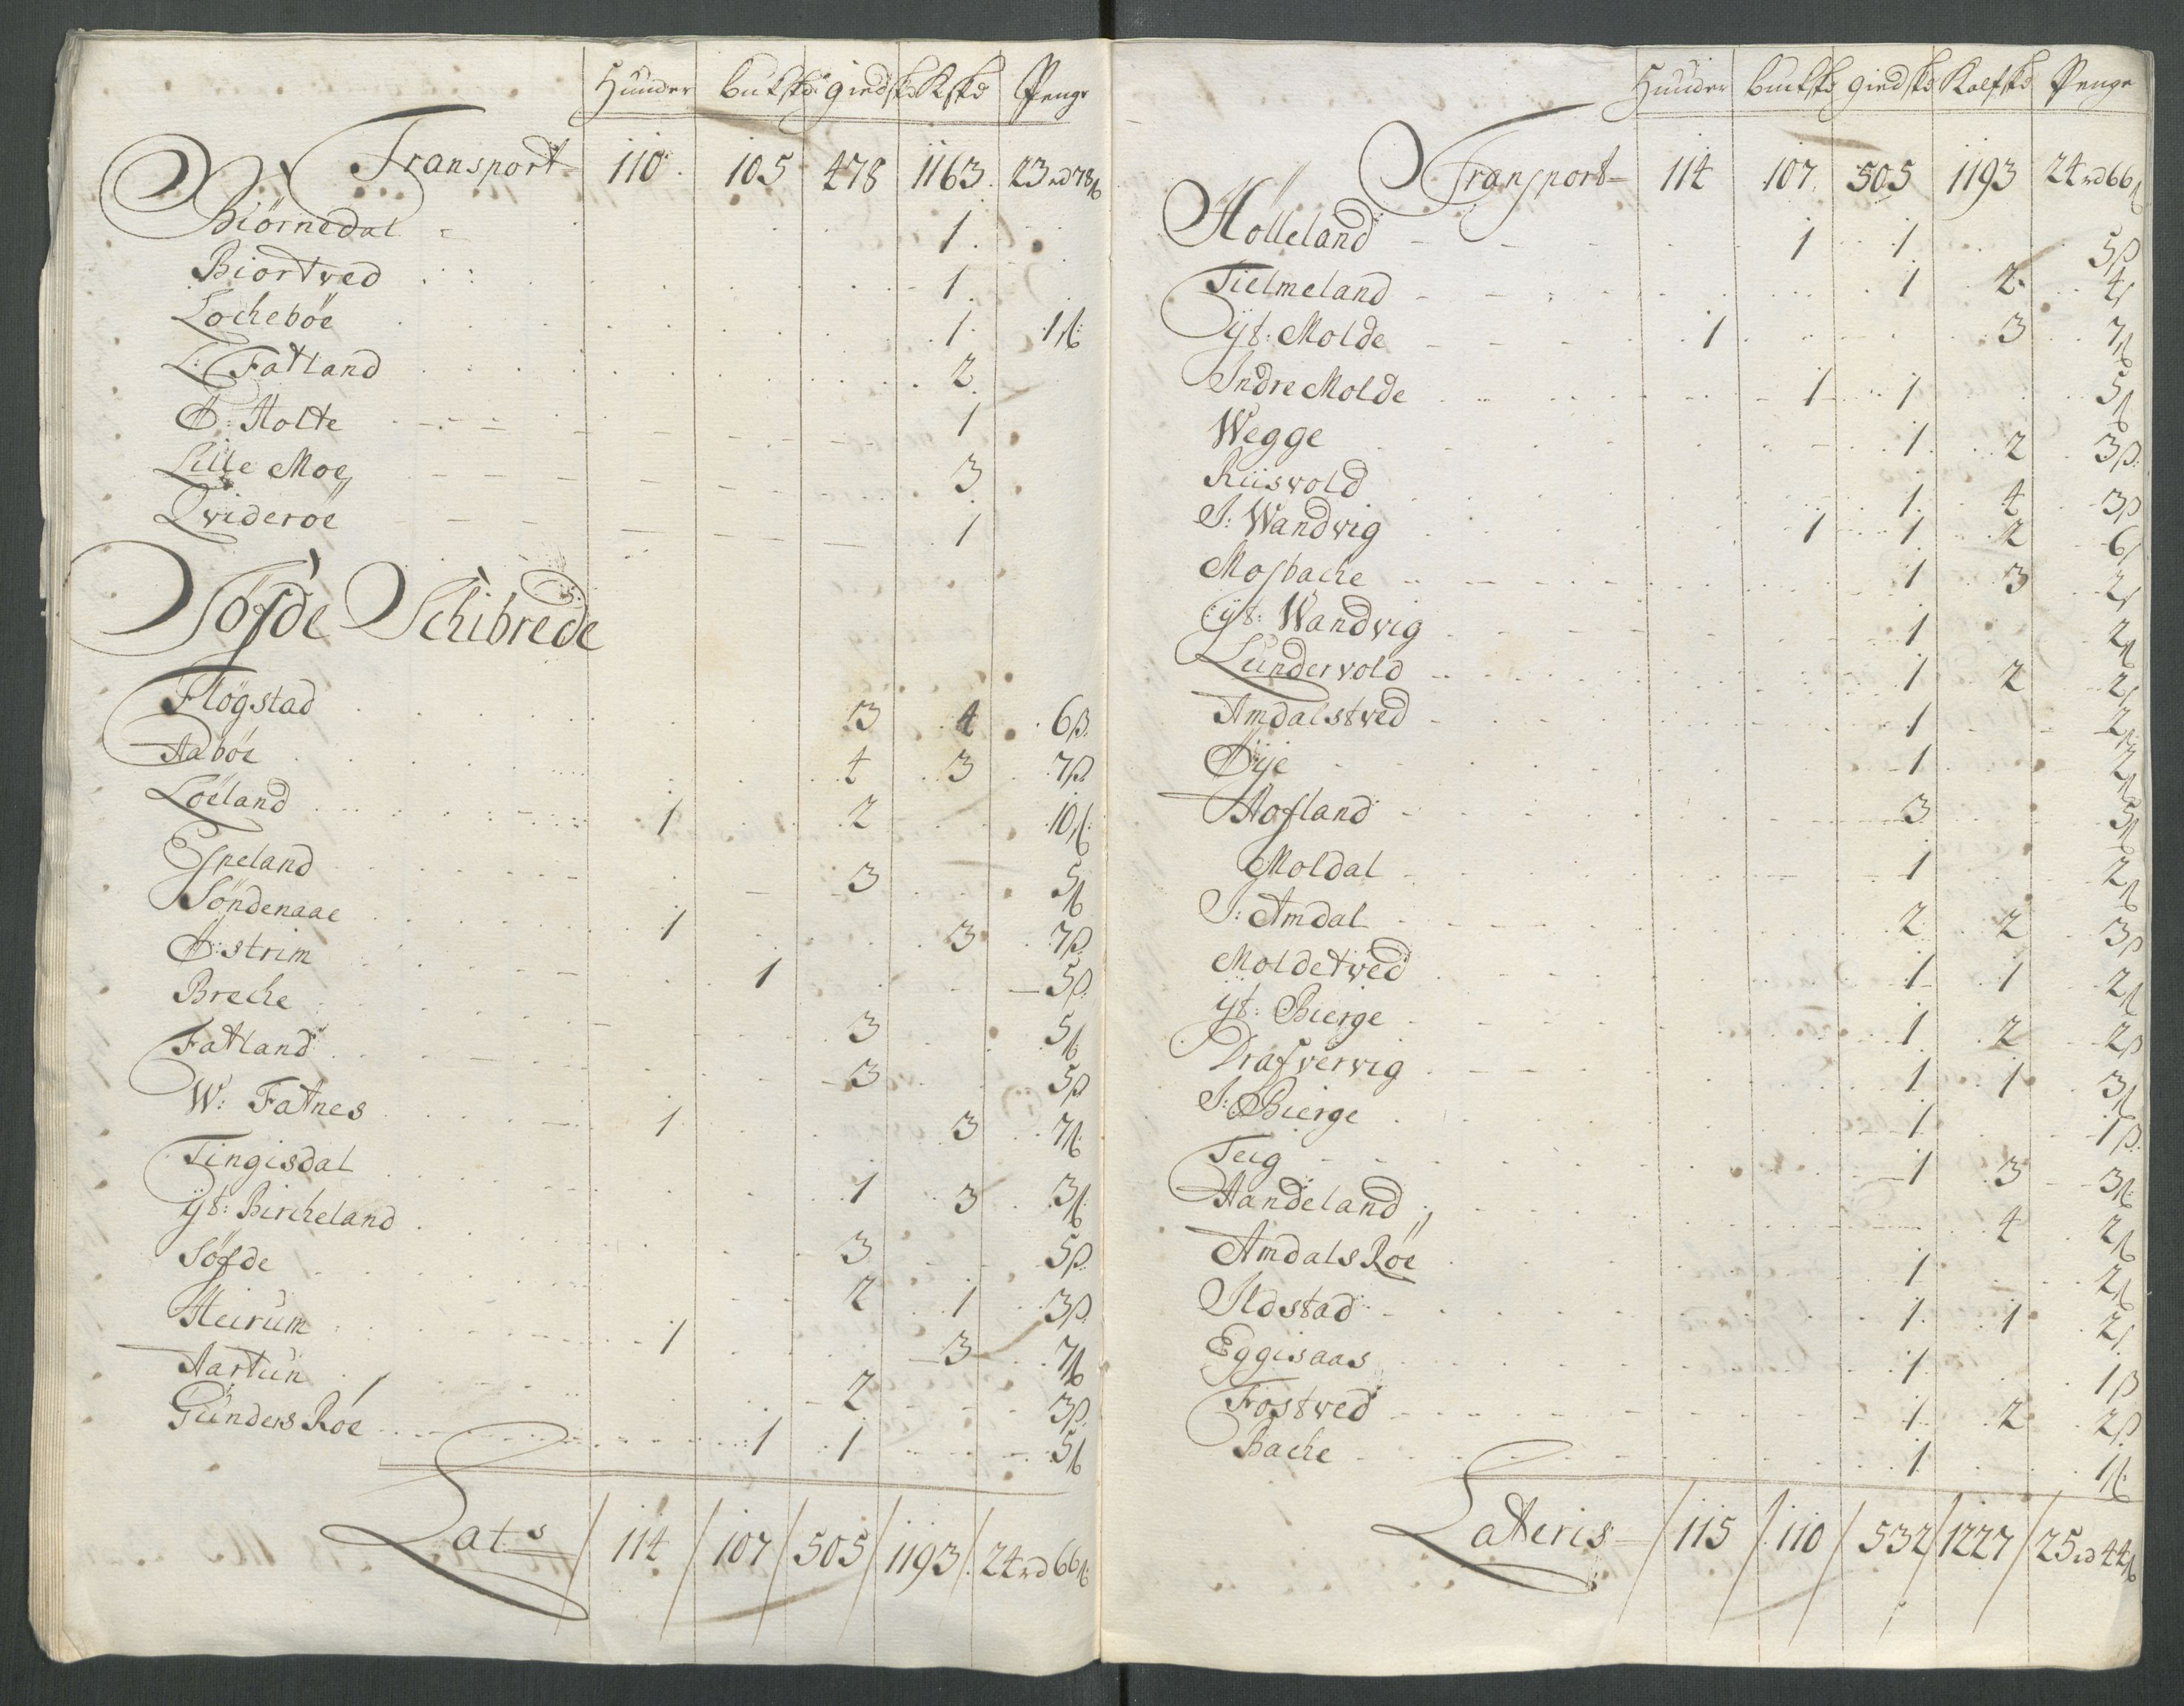 Huuder Bukskd giedskd Kskd Penge
Transport 110 105 478 1163 23 rd 78 ß
Biörnedal - 1
Biortved 1
Locheböe 1 1 ß
L: Fatland 2
Ö: Holte 1
Lille Moe 3
Qvideröe 1
Söfde Schibrede
Flögstad 3 4 6 ß
Aaböe 4 3 7 ß
Löeland 1 2 10 ß
Espeland 3 5 ß
Söndenaae 1 3 7 ß
Ö: strim 1 5 ß
Breche 3 5 ß
Fatland 3 5 ß
W: Fatnes 1 3 7 ß
Tingisdal 1 3 3 ß
ÿt: Bircheland 3 5 ß
Söfde 2 1 3 ß
Heirum 1 3 7 ß
Aartun 2 3 ß
Gunders Röe 1 1 5 ß
Lat:s 114 107 505 1193 24 rd 66 ß
Huuder Buckskd giedskd Kalfskd Penge
Transport 114 107 505 1193 24 rd 66 ß
Hölleland 1 1 5 ß
Tielmeland 1 2 4 ß
ÿt: Molde 1 3 7 ß
Indre Molde 1 1 5 ß
Wegge 1 2 3 ß
Riisvold 1 4 3 ß
I: Wandvig 1 1 2 6 ß
Mosbache 1 3 2 ß
ÿt: Wandvig 1 2 ß
Lundervold 1 2 2 ß
Amdalstved 1 2 ß
Öÿe 1 2 ß
Hofland 3 5 ß
Moldal 1 2 ß
I: Amdal 2 2 3 ß
Moldetved 1 1 2 ß
ÿt: Bierge 1 2 2 ß
Drafvervig 1 1 3 ß
I: Bierge 1 1 ß
Teig 1 3 3 ß
Handeland 4 2 ß
Amdals Röe 1 2 ß
Ildstad 1 1 2 ß
Eggisaas 1 1 ß
Fostved 1 2 2 ß
Bache 1 1 ß
Latteris 115 110 532 1227 25 rd 44 ß